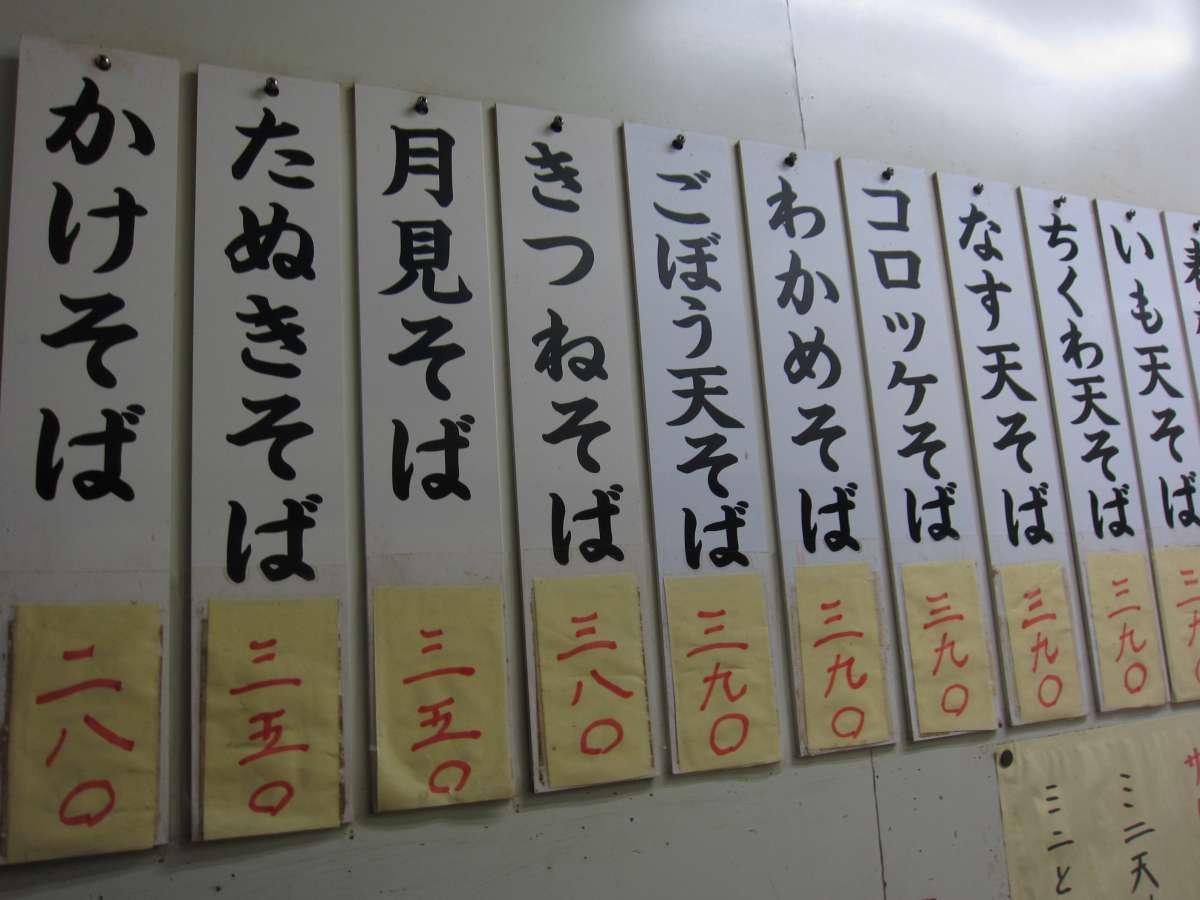 かけそば
二八〇
たぬきそば
三五〇
月見そば
三五〇
きつねそば
三八〇
ごぼう天そば
三九〇
わかめそば
三九〇
コロッケそば
三九〇
なす天そば
三九〇
ちくわ天そば
三九〇
いも天そば
三九〇
ミニ天
ミニと